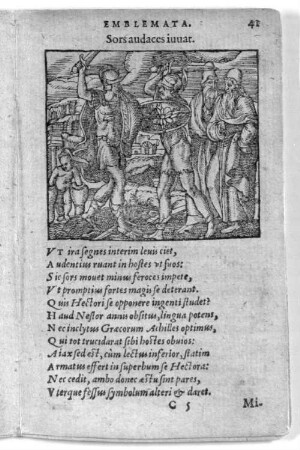 EMBLEMATA. 41
Sors audaces iuuat.
VT ira segnes interim leuis ciet,
Audentius ruant in hostes vt suos:
Sic sors mouet minus feroces impete,
Vt promptius fortes magis se deterant.
Quis Hectori se opponere ingenti studet?
Haud Nestor annis obsitus, lingua potens,
Nec inclytus Græcorum Achilles optimus,
Qui tot trucidarat sibi hostes obuios:
Aiax sed est, cùm lectus inferior, statim
Armatus effert in superbum se Hectora:
Nec cedit, ambo donec æstu sint pares,
Vterque fessus symbolum alteri &amp; daret.
C 5 Mi-